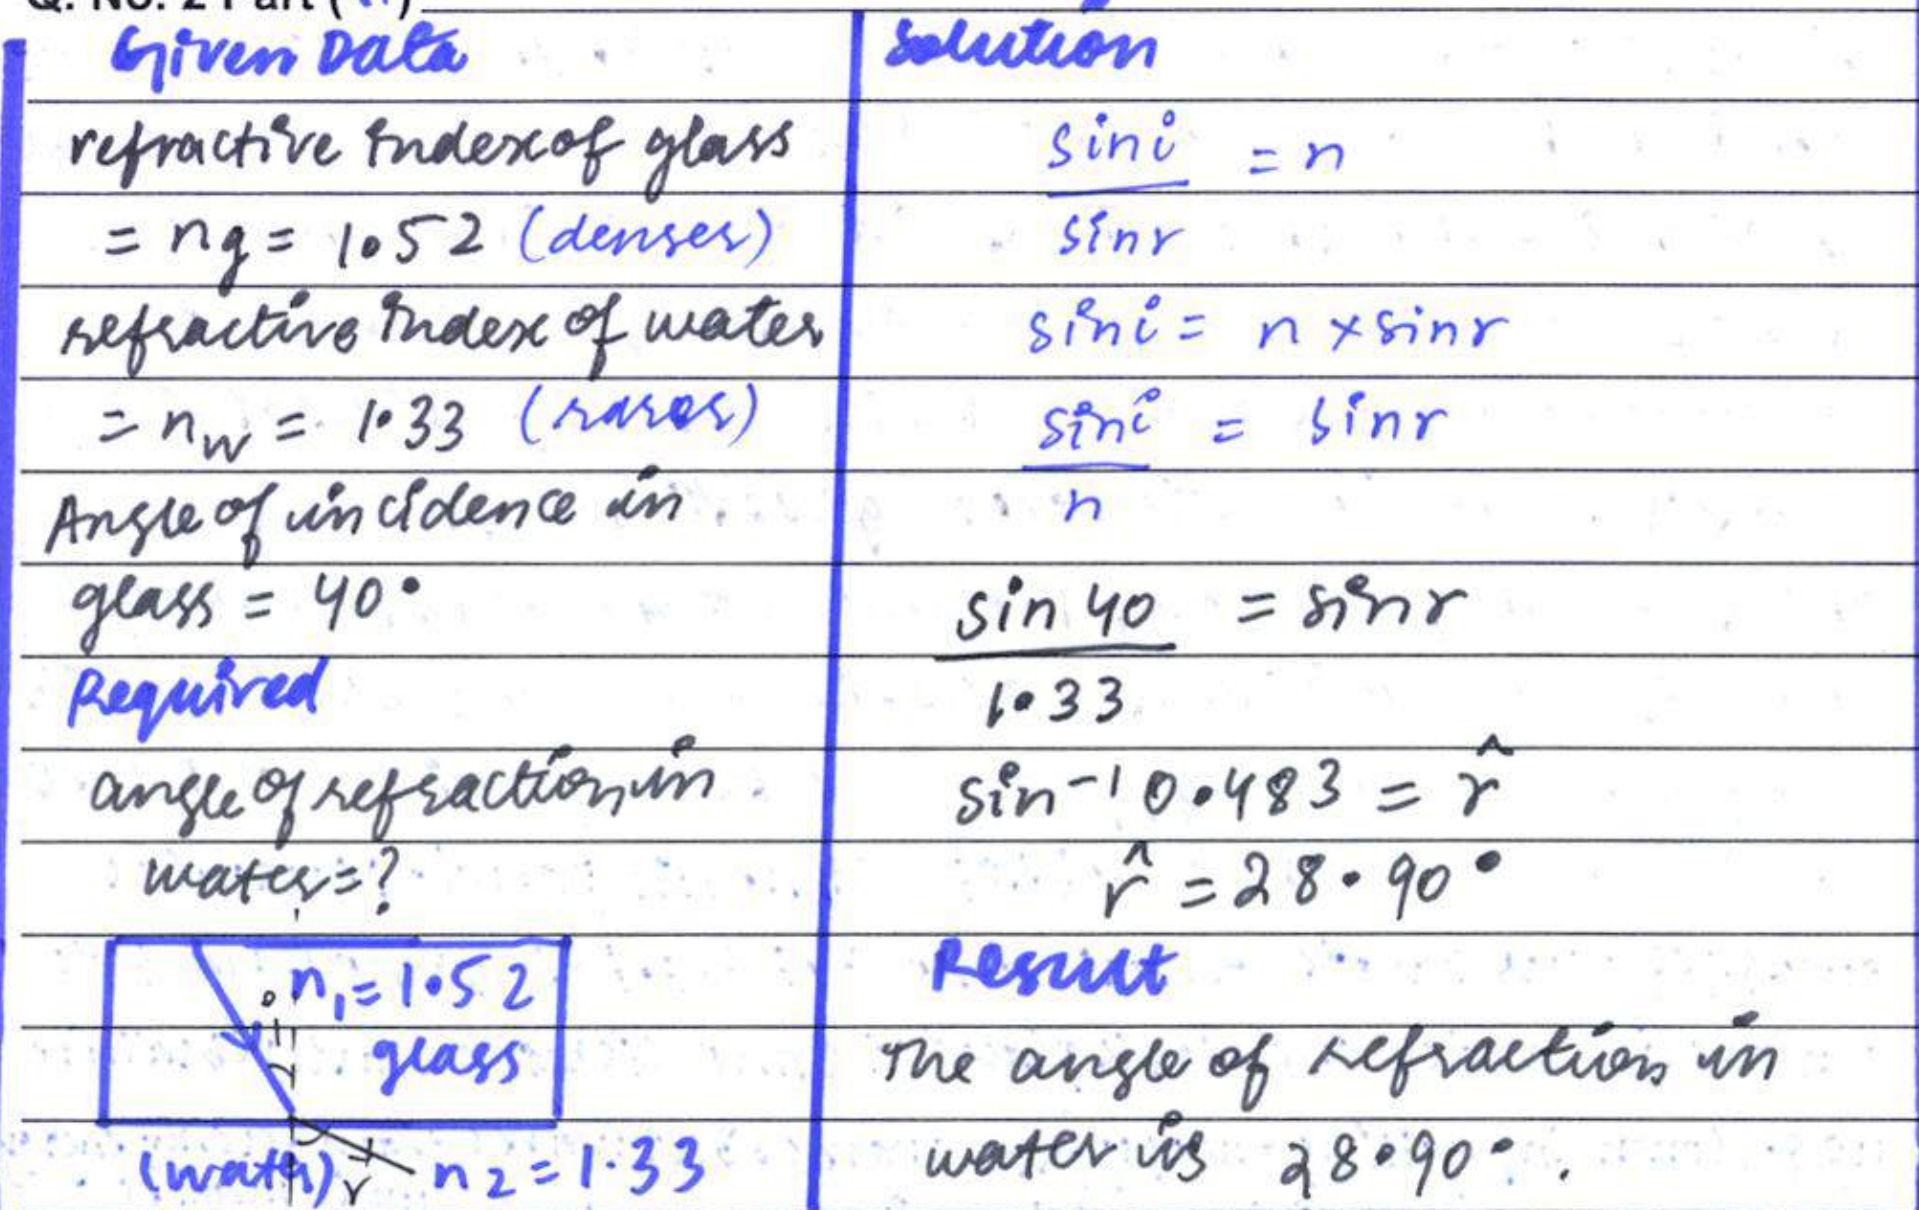 Given Data
refractive index of glass
= ng = 1.52 (denser)
refractive index of water
= nw = 1.33 (rarer)
Angle of incidence in
glass = 40°
Required
angle of refraction in
water = ?
i n1 = 1.52
glass
(water) r n2 = 1.33
Solution
sin i / sin r = n
sin i = n × sin r
sin i / n = sin r
sin 40 / 1.33 = sin r
sin⁻¹ 0.483 = r̂
r̂ = 28.90°
Result
The angle of refraction in
water is 28.90°.